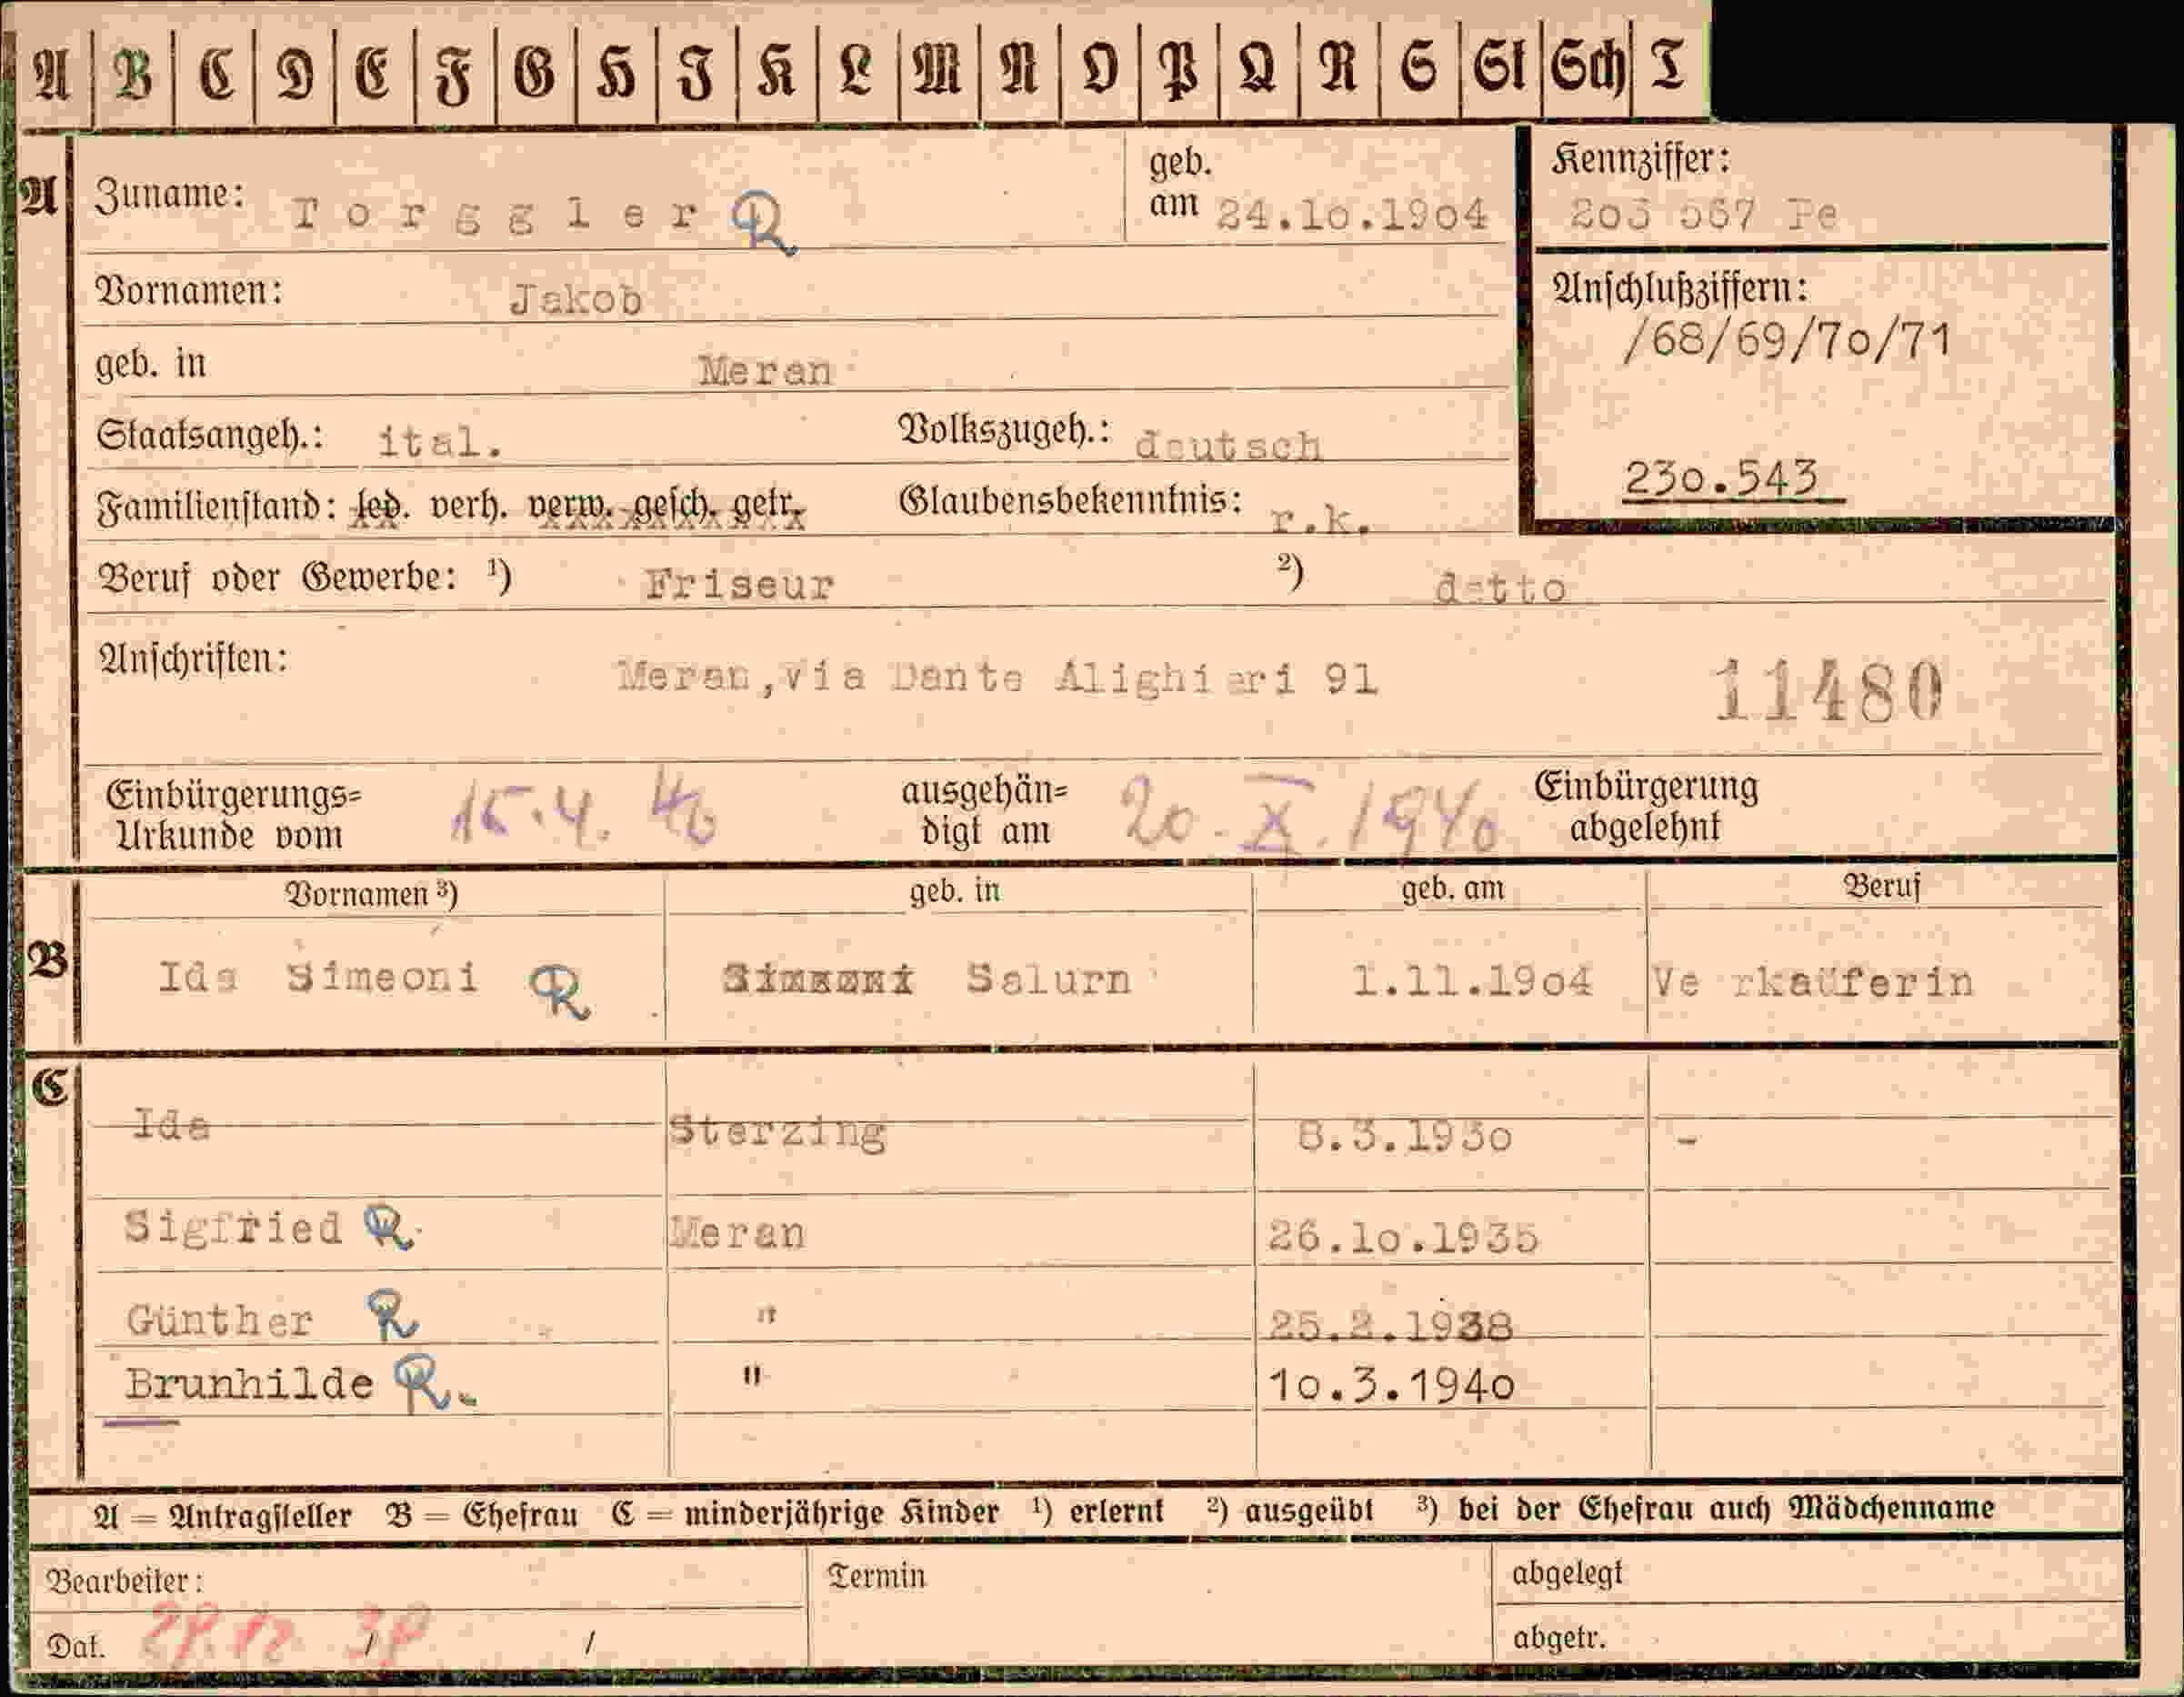 A B C D E F G H J K L M N O P Q R S St Sch T
A Zuname: Torggler R geb. am 24.10.1904
Kennziffer:
Vornamen: Jakob
Anschlußziffern:
/68/69/70/71
geb. in Meran
Staatsangeh.: ital. Volkszugeh.: deutsch
230.543
Familienstand: led. verh. verw. gesch. getr. Glaubensbekenntnis: r.k.
Beruf oder Gewerbe: ¹) Friseur ²) detto
Anschriften: Meran, via Dante Alighieri 91 11480
Einbürgerungs=Urkunde vom 15.4.40 ausgehän=digt am 20.X.1940 Einbürgerung abgelehnt
Vornamen ³) geb. in geb. am Beruf
B Ida Simeoni R Simeoni Salurn 1.11.1904 Verkaüferin
C Ida Sterzing 8.3.1930 -
Sigfried R Meran 26.10.1935
Günther R " 25.2.1938
Brunhilde R. " 10.3.1940
A = Antragsteller B = Ehefrau C = minderjährige Kinder ¹) erlernt ²) ausgeübt ³) bei der Ehefrau auch Mädchenname
Bearbeiter: Termin abgelegt
Dat. / / abgetr.